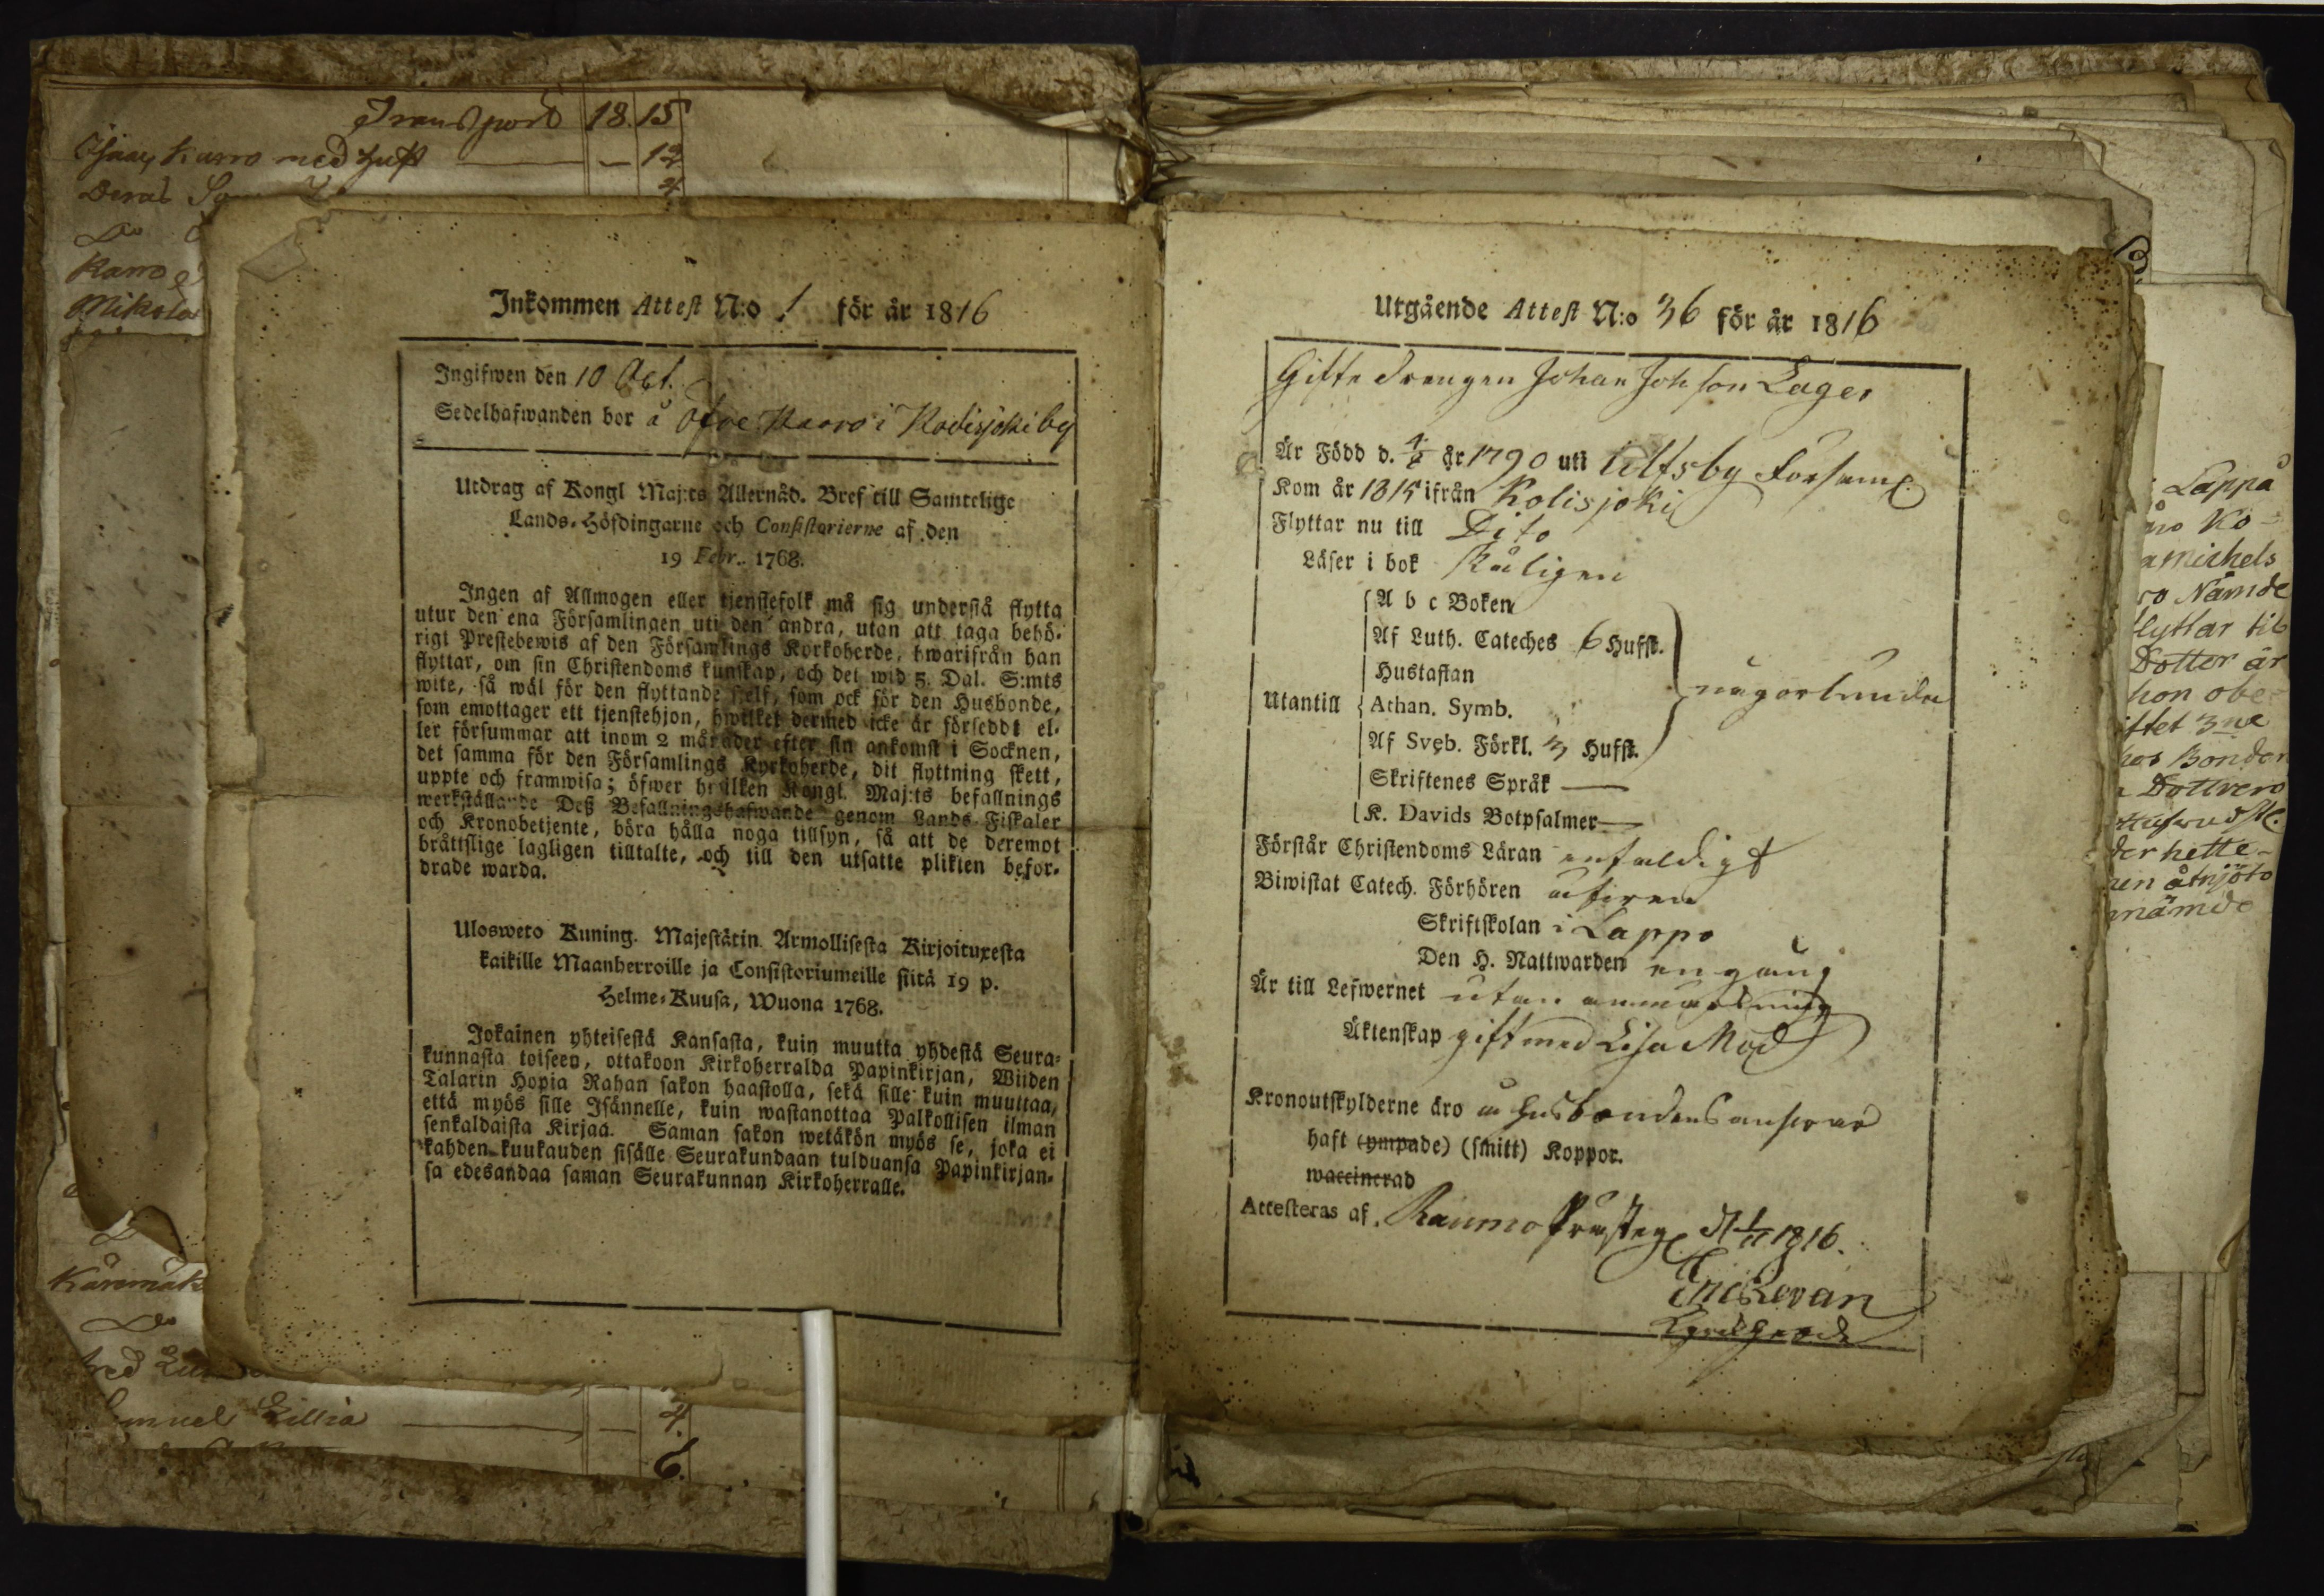 Transport 18. 15
Karro med hust — — 12
Deras 4
Do
Karro
Mikola
Inkommen Attest N:o 1 för år 1816
Ingifwen den 10 Oct.
Sedelhafwanden bor å Öfre Karro i Kodisjoki by
Utdrag af Kongl Maj:ts Allernåd. Bref till Samtelige
Lands-Höfdingarne och Consistorierne af den
19 Febr. 1768.
Ingen af Allmogen eller tjenstefolk må sig understå flytta
utur den ena Församlingen uti den andra, utan att taga behö-
rigt Prestebewis af den Församlings Kyrkoherde, hwarifrån han
flyttar, om sin Christendoms kunskap, och det wid 5. Dal. S:mts
wite, så wäl för den flyttande sjelf, som ock för den Husbonde,
som emottager ett tjenstehjon, hwilket dermed icke är försedd: el-
ler försummar att inom 2 månader efter sin ankomst i Socknen,
det samma för den Församlings Kyrkoherde, dit flyttning skett,
uppte och framwisa; öfwer hwilken Kongl. Maj:ts befallnings
werkställande Deß Befallningshafwande genom Lands-Fiskaler
och Kronobetjente, böra hålla noga tillsyn, så att de deremot
bråttslige lagligen tilltalte, och till den utsatte plikten befor-
drade warda.
Ulosweto Kuning. Majestätin Armollisesta Kirjoituxesta
kaikille Maanherroille ja Consistoriumeille siitä 19 p.
Helme-Kuusa, Wuona 1768.
Jokainen yhteisestä Kansasta, kuin muutta yhdestä Seura-
kunnasta toiseen, ottakoon Kirkoherralda Papinkirjan, Wiiden
Talarin Hopia Rahan sakon haastolla, sekä sille kuin muuttaa,
että myös sille Isännelle, kuin wastanottaa Palkollisen ilman
senkaldaista Kirjaa. Saman sakon wetäkön myös se, joka ei
kahden kuukauden sisälle Seurakundaan tulduansa Papinkirjan-
sa edesandaa saman Seurakunnan Kirkoherralle.
Käremäk
Do
Lillia — — 4.
6.
Utgående Attest N:o 36 för år 1816
Gifte drengen Johan Johsson Lager
Är Född d. år 1790 uti Ulfsby Forsaml.
Kom år 1815 ifrån Kolisjoki
Flyttar nu till Dito
Läser i bok
A b c Boken
Af Luth. Cateches 6 Hufst.
Hustaflan
Utantill Athan. Symb. någorlunda
Af Sveb. Förkl. 3 Hufst.
Skriftenes Språk —
K. Davids Botpsalmer —
Förstår Christendoms Läran enfaldigt
Biwistat Catech. Förhören
Skriftskolan i Lappo
Den H. Nattwarden en gång
Är till Lefwernet utan anmärkning
Äktenskap gift med Lisa
Kronoutskylderne äro å husbondens answar
haft (ympade) (smitt) Koppor.
waccinerad
Attesteras af. Raumo Prästeg. d 1/11 1816.
Eric Levan
Lappå
Ko-
michels
Nämde
flyttar til
Dotter är
hon obe-
3ne
Bonden
Dottrero
hette-
åtnjöto
nämde